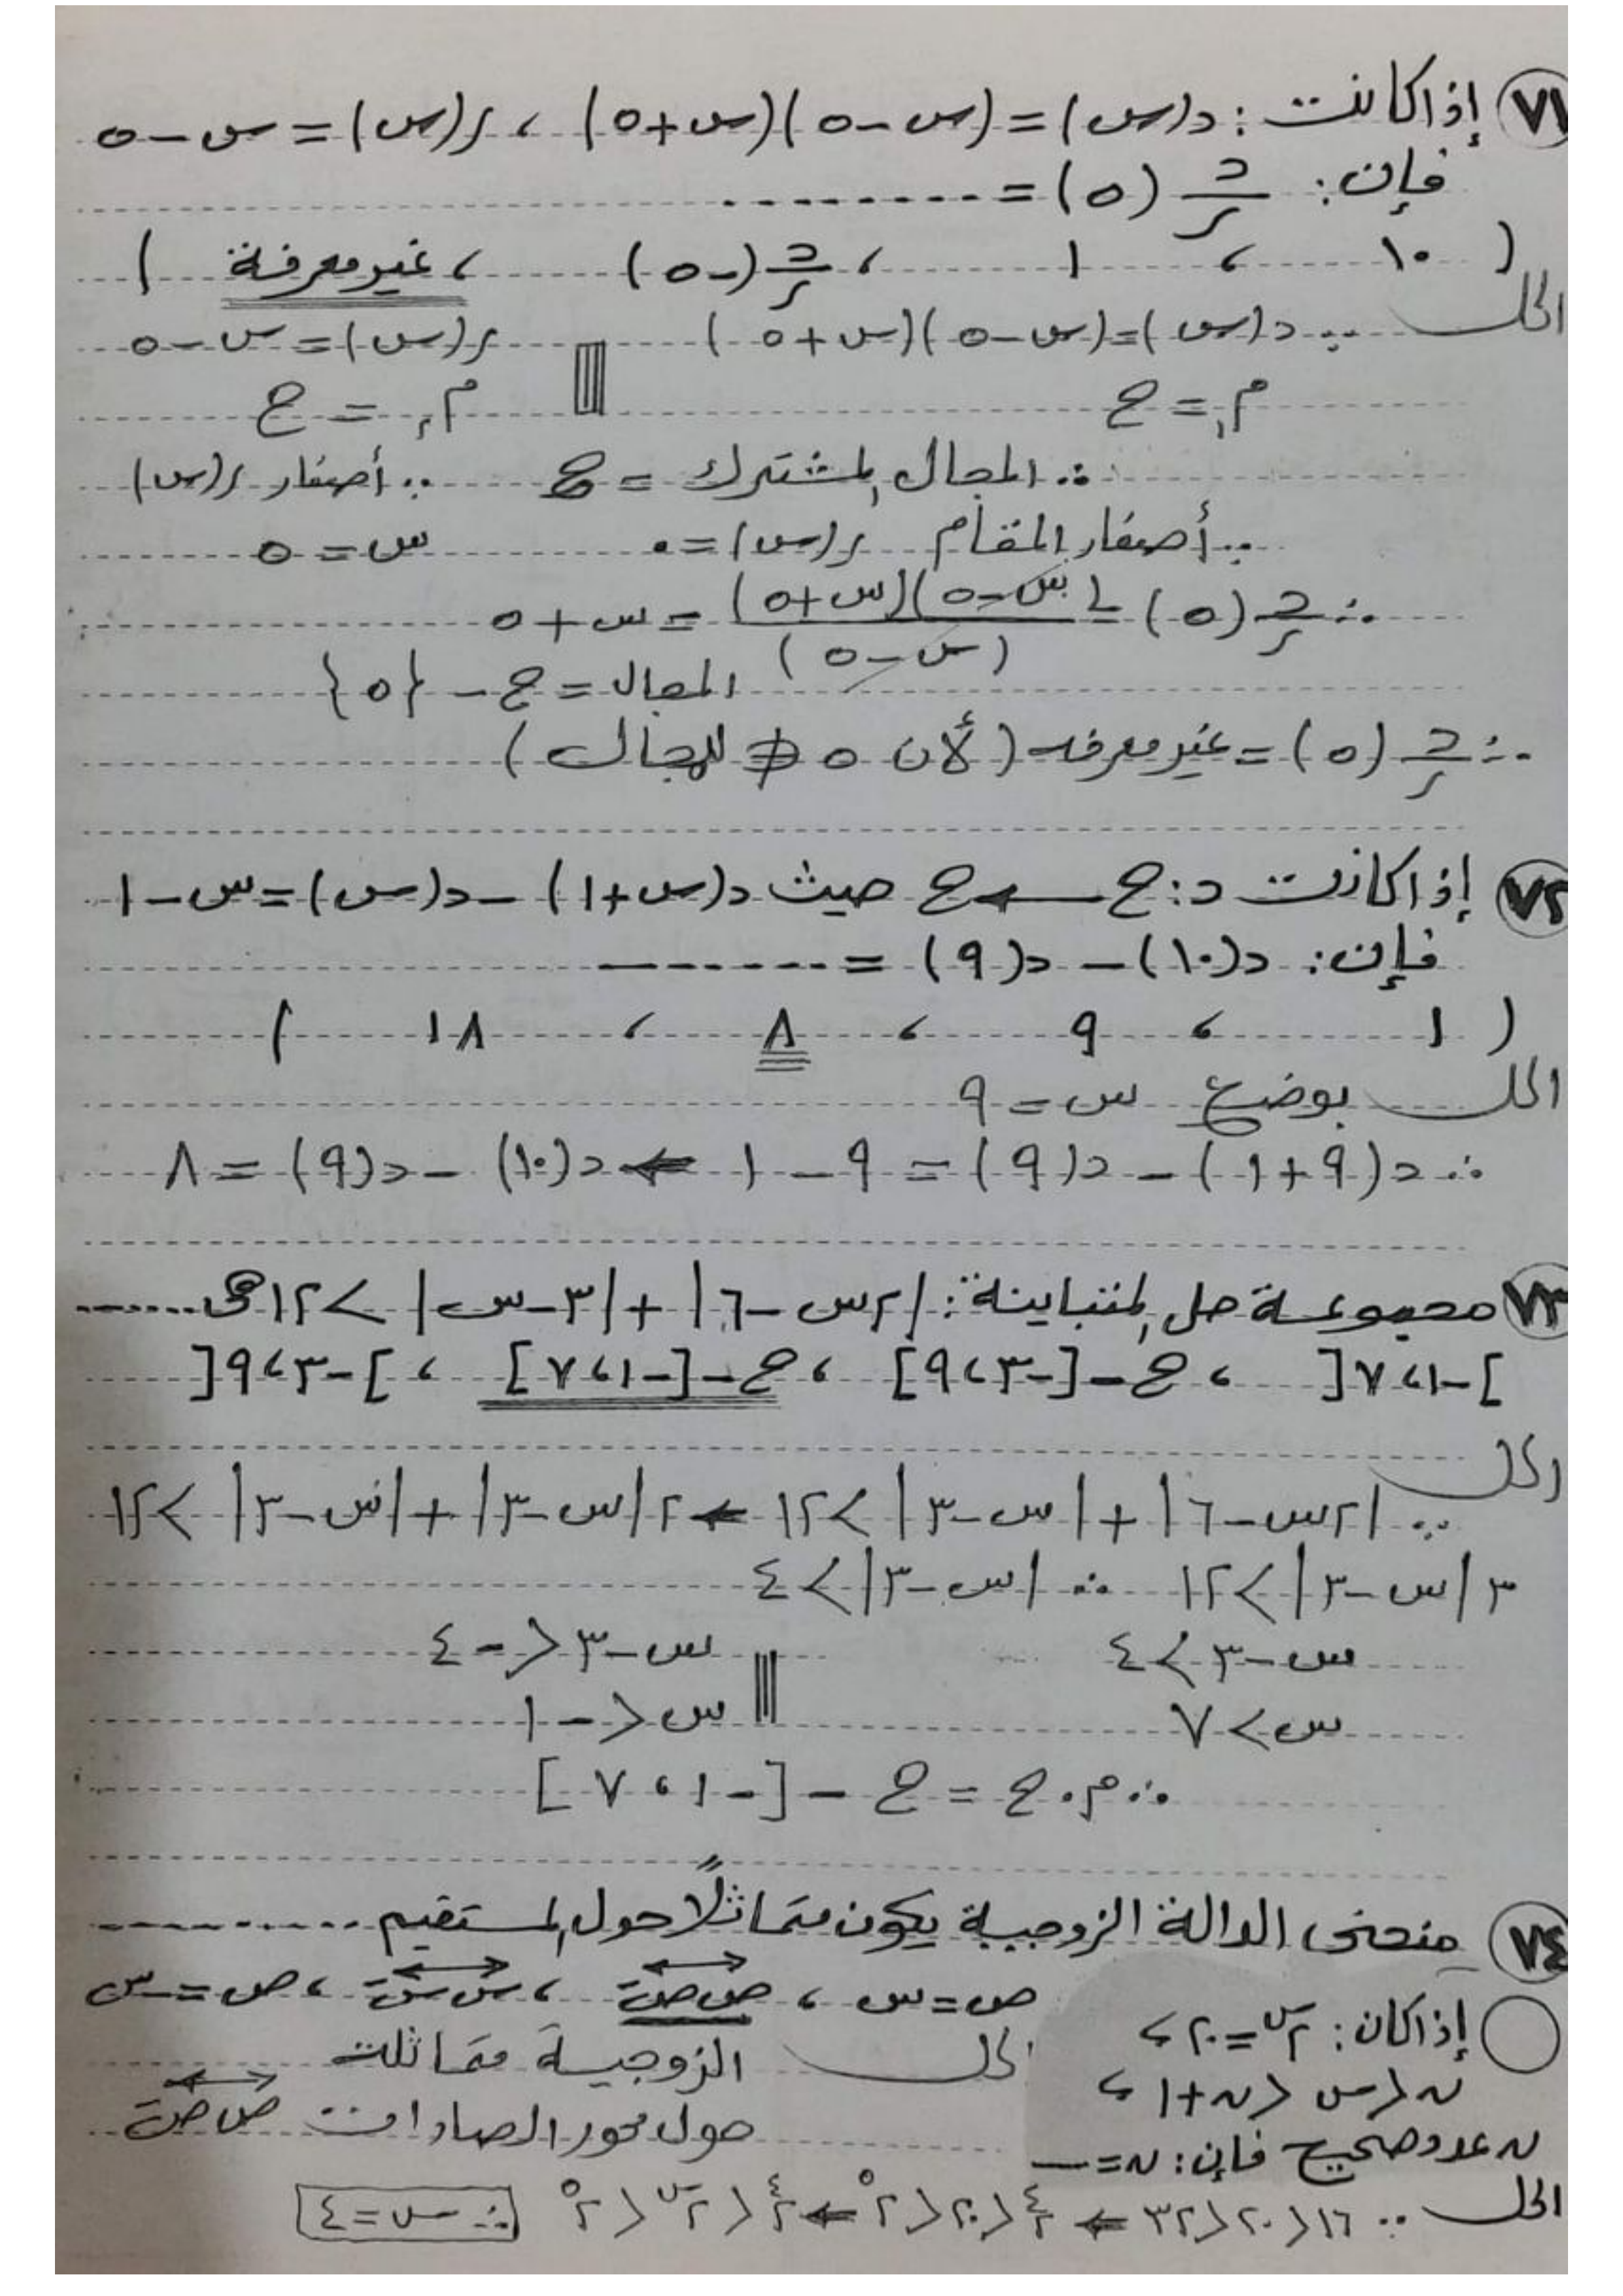 ٧١ إذا كانت : د(س) = (س - ٥)(س + ٥) ، ر(س) = س - ٥
فإن : د/ر (٥) = ........
( ١٠ ، ١ ، د/ر (-٥) ، غير معرفة )
الحل ∵ د(س) = (س - ٥)(س + ٥) ر(س) = س - ٥
م١ = ح م٢ = ح
∴ المجال المشترك = ح ∵ أصفار ر(س)
∵ أصفار المقام ر(س) = ٠ س = ٥
∴ د/ر (٥) = (س - ٥)(س + ٥) / (س - ٥) = س + ٥
المجال = ح - {٥}
∴ د/ر (٥) = غير معرفه (لأن ٥ ∉ للمجال)
٧٢ إذا كانت د : ح ← ح حيث د(س + ١) - د(س) = س - ١
فإن : د(١٠) - د(٩) = -------
( ١ ، ٩ ، ٨ ، ١٨ )
الحل بوضع س = ٩
∴ د(٩ + ١) - د(٩) = ٩ - ١ ← د(١٠) - د(٩) = ٨
٧٣ مجموعة حل المتباينة : |٢س - ٦| + |٣ - س| > ١٢ هى ......
]-١ ، ٧[ ، ح - [-٣ ، ٩] ، ح - [-١ ، ٧] ، ]-٣ ، ٩[
الحل
∵ |٢س - ٦| + |س - ٣| > ١٢ ← ٢|س - ٣| + |س - ٣| > ١٢
٣|س - ٣| > ١٢ ∴ |س - ٣| > ٤
س - ٣ > ٤ س - ٣ < -٤
س > ٧ س < -١
∴ م.ح = ح - [-١ ، ٧]
٧٤ منحنى الدالة الزوجية يكون متماثلًا حول المستقيم ..........
ص = س ، ص ص َ ، س س َ ، ص = -س
الحل الزوجية متماثلة
حول محور الصادات ص ص َ
إذا كان : ٢^س = ٢٠ ،
ن < س < ن + ١ ،
ن عدد صحيح فإن : ن = —
الحل ∵ ١٦ < ٢٠ < ٣٢ ← ٢^٤ < ٢٠ < ٢^٥ ← ٢^٤ < ٢^س < ٢^٥ ∴ ن = ٤